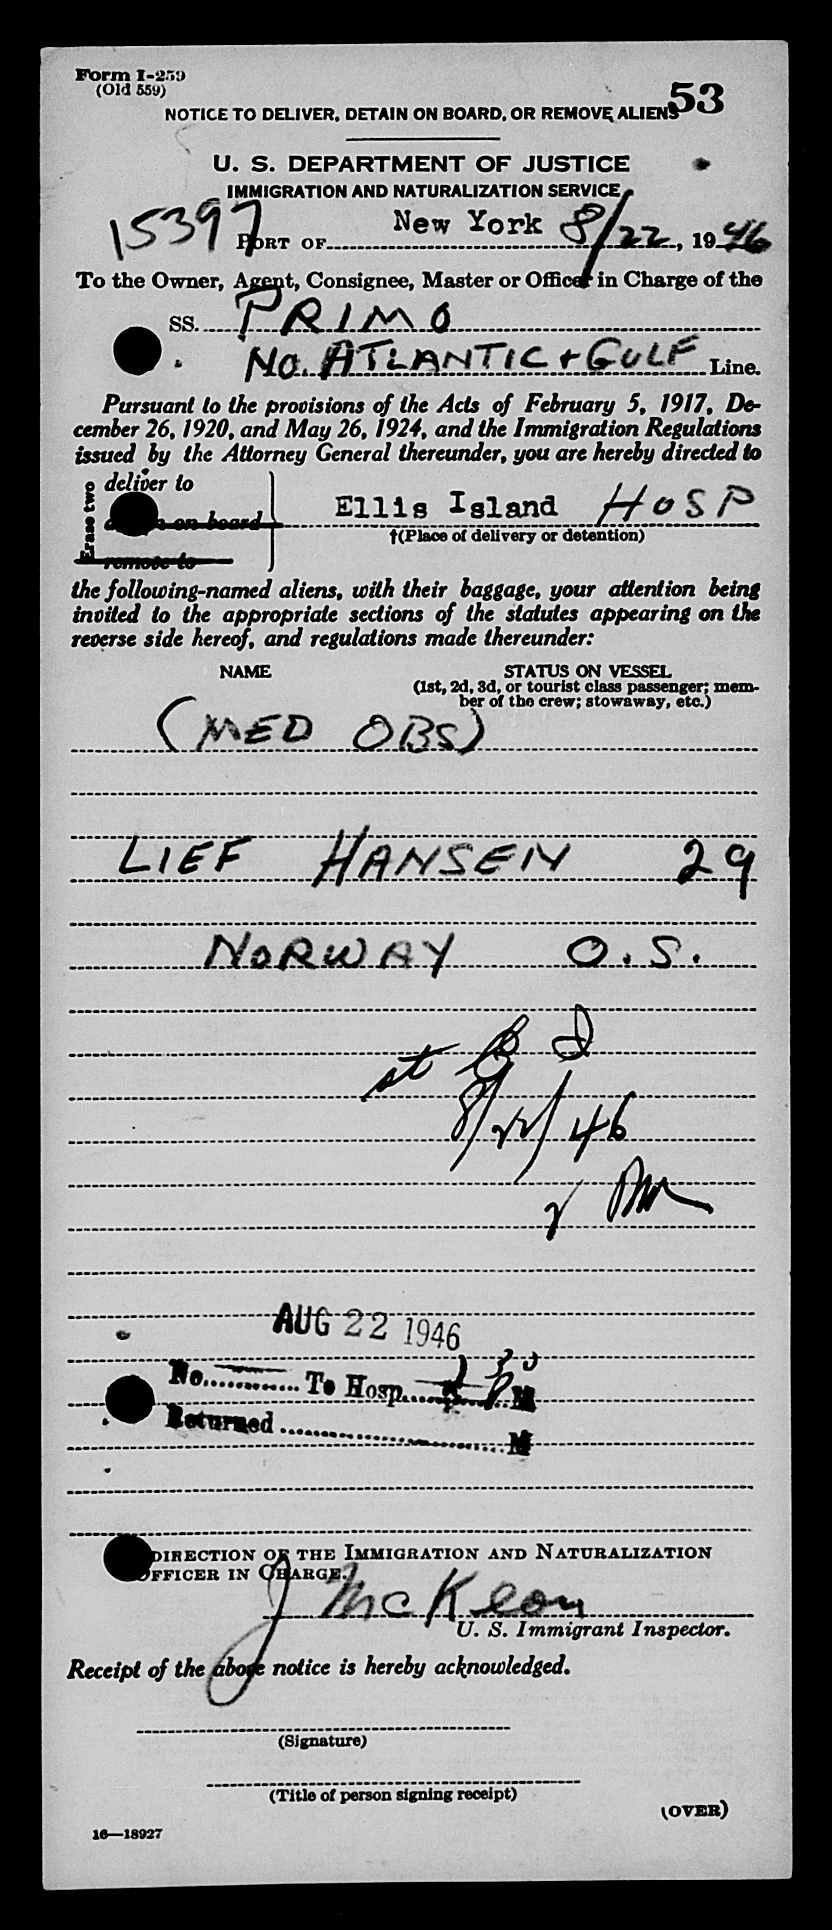 Form I-259
(Old 559)
53
NOTICE TO DELIVER, DETAIN ON BOARD, OR REMOVE ALIENS
U. S. DEPARTMENT OF JUSTICE
IMMIGRATION AND NATURALIZATION SERVICE
15397 PORT OF New York 8/22, 1946
To the Owner, Agent, Consignee, Master or Officer in Charge of the
SS. PRIMO
NO. ATLANTIC + GULF Line.
Pursuant to the provisions of the Acts of February 5, 1917, De-
cember 26, 1920, and May 26, 1924, and the Immigration Regulations
issued by the Attorney General thereunder, you are hereby directed to
Erase two
deliver to
on board
remove to
Ellis Island HOSP
†(Place of delivery or detention)
the following-named aliens, with their baggage, your attention being
invited to the appropriate sections of the statutes appearing on the
reverse side hereof, and regulations made thereunder:
NAME STATUS ON VESSEL
(1st, 2d, 3d, or tourist class passenger; mem-
ber of the crew; stowaway, etc.)
(MED OBS)
LIEF HANSEN 29
NORWAY O.S.
st
8/22/46
AUG 22 1946
No. To Hosp. M
Returned M
DIRECTION OF THE IMMIGRATION AND NATURALIZATION
OFFICER IN CHARGE.
J McKeon
U. S. Immigrant Inspector.
Receipt of the above notice is hereby acknowledged.
(Signature)
(Title of person signing receipt)
(OVER)
16—18927